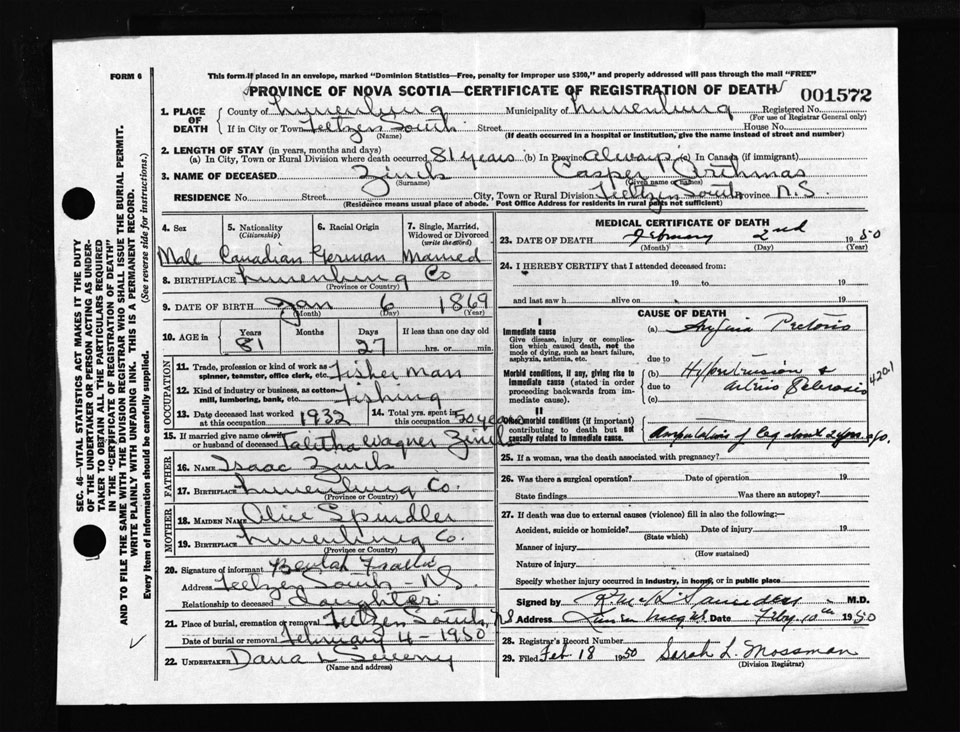 FORM 6
This form if placed in an envelope, marked "Dominion Statistics—Free, penalty for improper use $300," and properly addressed will pass through the mail "FREE"
PROVINCE OF NOVA SCOTIA—CERTIFICATE OF REGISTRATION OF DEATH
001572
1. PLACE OF DEATH County of Lunenburg Municipality of Lunenburg Registered No.
(For use of Registrar General only)
If in City or Town Feltzen South Street House No.
(Name) (If death occurred in a hospital or institution, give the name instead of street and number)
2. LENGTH OF STAY (in years, months and days)
(a) In City, Town or Rural Division where death occurred 81 years (b) In Province Always (c) In Canada (if immigrant)
3. NAME OF DECEASED Zinck Casper
(Surname) (Given name or names)
RESIDENCE No. Street City, Town or Rural Division Feltzen South Province N.S.
(Residence means usual place of abode. Post Office Address for residents in rural parts not sufficient)
4. Sex 5. Nationality (Citizenship) 6. Racial Origin 7. Single, Married, Widowed or Divorced (write the word)
Male Canadian German Married
8. BIRTHPLACE Lunenburg Co
(Province or County)
9. DATE OF BIRTH Jan 6 1869
(Month) (Day) (Year)
10. AGE in Years Months Days If less than one day old
81 27 hrs. or min.
OCCUPATION
11. Trade, profession or kind of work as spinner, teamster, office clerk, etc. Fisherman
12. Kind of industry or business, as cotton mill, lumbering, bank, etc. Fishing
13. Date deceased last worked at this occupation 1932 14. Total yrs. spent in this occupation 50 years
15. If married give name of wife or husband of deceased Tabitha Wagner Zinck
FATHER
16. NAME Isaac Zinck
17. Birthplace Lunenburg Co.
(Province or County)
MOTHER
18. MAIDEN NAME Alice Spindler
19. BIRTHPLACE Lunenburg Co.
(Province or County)
20. Signature of informant Beulah
Address Feltzen South - N.S.
Relationship to deceased daughter
21. Place of burial, cremation or removal Feltzen South, N.S
Date of burial or removal February 4 - 1950
22. UNDERTAKER Dana L Sweeny
(Name and address)
MEDICAL CERTIFICATE OF DEATH
23. DATE OF DEATH February 2nd 1950
(Month) (Day) (Year)
24. I HEREBY CERTIFY that I attended deceased from:
19 to 19
and last saw h alive on 19
CAUSE OF DEATH
I
Immediate cause
Give disease, injury, or complication which caused death, not the mode of dying, such as heart failure, asphyxia, asthenia, etc.
(a) Angina Pectoris
due to
Morbid conditions, if any, giving rise to immediate cause (stated in order proceeding backwards from immediate).
(b) Hypertension &
due to Arterio Sclerosis
420-1
(c)
II
Other morbid conditions (if important) contributing to death but not causally related to immediate cause.
Amputation of leg about 2 yrs. ago.
25. If a woman, was the death associated with pregnancy?
26. Was there a surgical operation? Date of operation 19
State findings Was there an autopsy?
27. If death was due to external causes (violence) fill in also the following:—
Accident, suicide or homicide? Date of injury 19
(State which)
Manner of injury
(How sustained)
Nature of injury
Specify whether injury occurred in industry, in home, or in public place
Signed by Saunders M.D.
Address Date Feby. 10th 1950
28. Registrar's Record Number
29. Filed Feb 18 1950 Sarah L. Mossman
(Division Registrar)
SEC. 46—VITAL STATISTICS ACT MAKES IT THE DUTY
OF THE UNDERTAKER OR PERSON ACTING AS UNDER-
TAKER TO OBTAIN ALL THE PARTICULARS REQUIRED
IN THE "CERTIFICATE OF REGISTRATION OF DEATH"
AND TO FILE THE SAME WITH THE DIVISION REGISTRAR WHO SHALL ISSUE THE BURIAL PERMIT.
WRITE PLAINLY WITH UNFADING INK. THIS IS A PERMANENT RECORD.
Every item of Information should be carefully supplied. (See reverse side for instructions.)